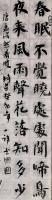 春眠不覺曉處處聞啼鳥
夜來風雨聲花落知多少
唐孟浩然